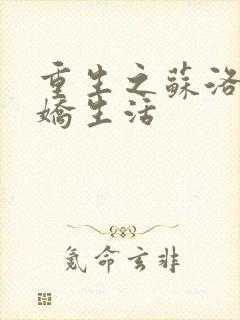 重生之蘇洛
嬌生活
氪命玄非